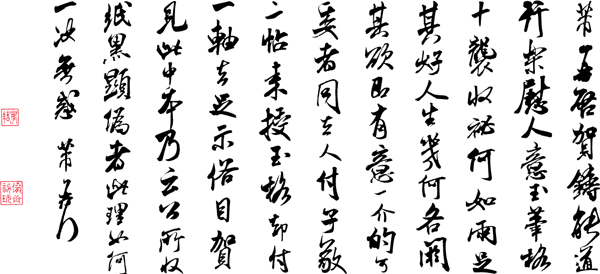 芾再啓賀鑄能道
行樂慰人意玉筆格
十襲收祕何如兩足
其好人生幾何各閼
其欲即有意一介的可
委者同去人付子敬
二帖來授玉格却付
一軸去足示俗目賀
見此中本乃云公所收
紙黑顯偽者此理如何
一決無惑 芾頓首